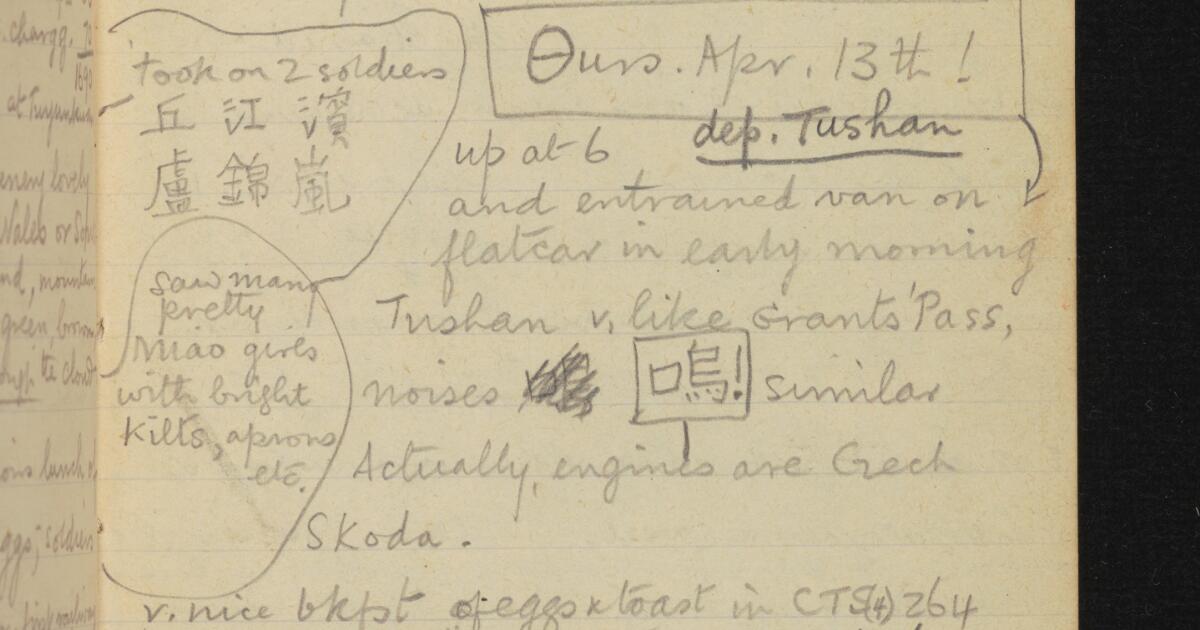 took on 2 soldiers
丘 江 濱
盧 錦 嵐
saw many
pretty
Miao girls
with bright
kilts, aprons
etc.
Θurs. Apr. 13th!
dep. Tushan
up at 6
and entrained van on
flatcar in early morning
Tushan v. like Grants' Pass,
noises 嗚! similar
Actually, engines are Czech
Skoda.
v. nice bkfst of eggs & toast in CTS(4) 264
enemy lovely
green, brown
the cloud